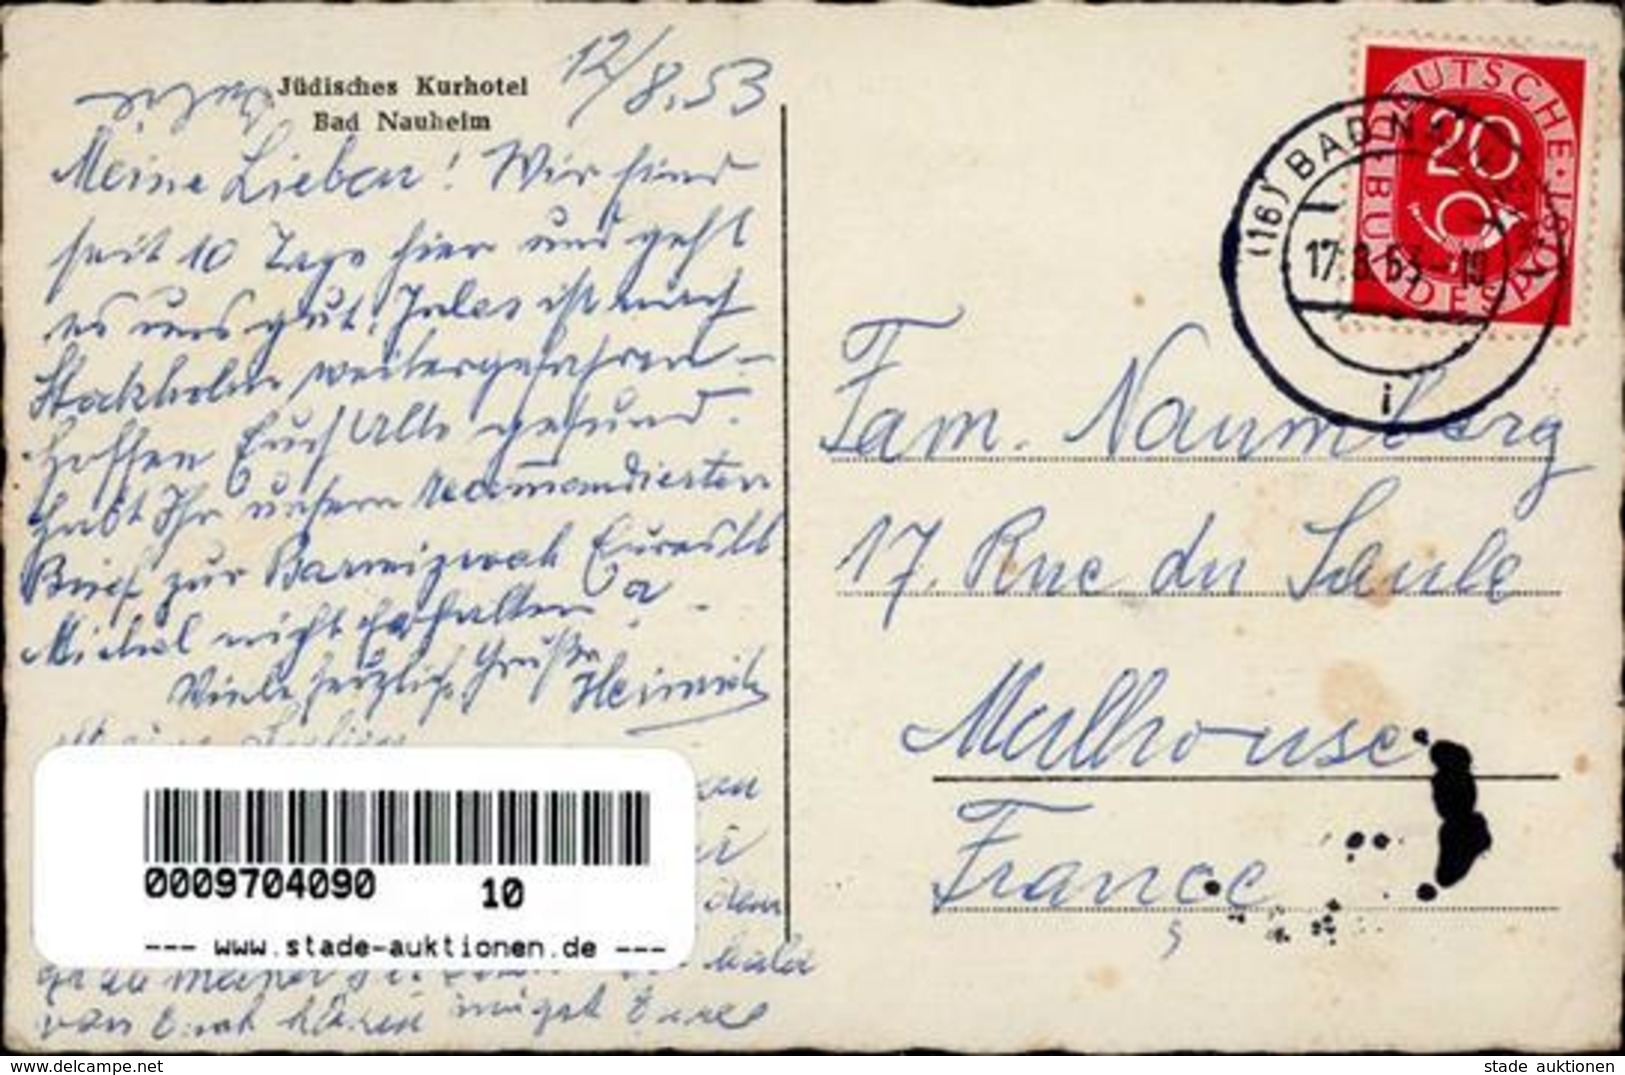 Jüdisches Kurhotel
Bad Nauheim
12/8.53
Meine Lieben! Wir sind
seit 10 Tage hier und geht
es uns gut. Jules ist nach
Stockholm weitergefahren -
hoffen Euch Alle gesund.
Habt Ihr unsern recommandierten
Brief zur Barmizwah Eures
Michel nicht erhalten?
Viele herzliche Grüße
Heinrich
dem
bald
von Euch hören innigst Eure
DEUTSCHE BUNDESPOST
20
(16) BAD N
17.8.53-19
i
Fam. Naumberg
17. Rue du Saule
Mulhouse
France
0009704090 10
--- www.stade-auktionen.de ---
stade auktionen stade auktionen